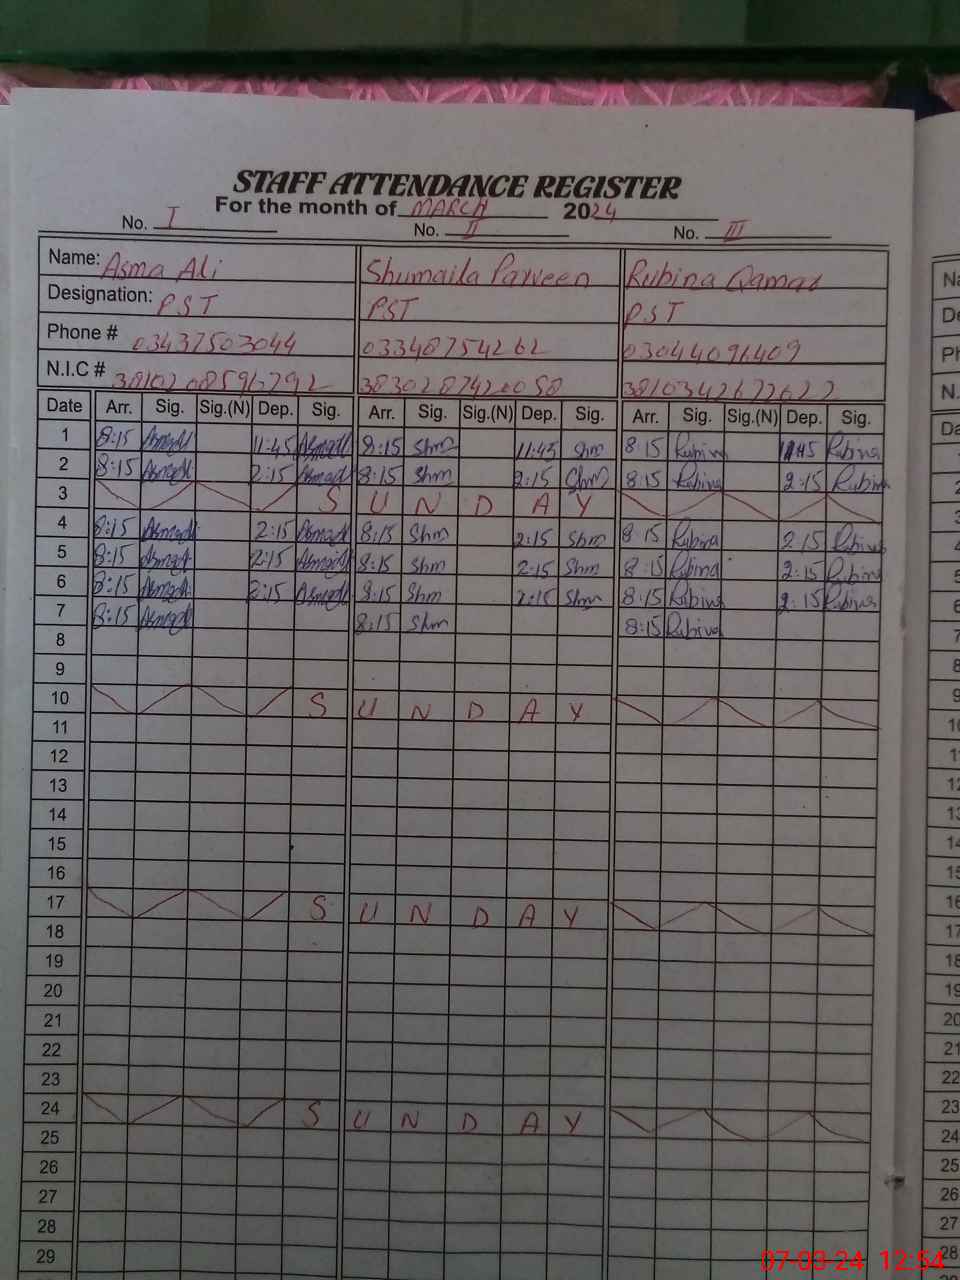 STAFF ATTENDANCE REGISTER
For the month of MARCH 2024
No. I No. II No. III
Name: Asma Ali Shumaila Parveen Rubina Qamar
Designation: PST PST PST
Phone # 03437503044 03348754262 03044096409
N.I.C # 3810208596792 3830287420058 3810342672622
Date Arr. Sig. Sig.(N) Dep. Sig. Arr. Sig. Sig.(N) Dep. Sig. Arr. Sig. Sig.(N) Dep. Sig.
1 8:15 11:45 8:15 Shm 11:45 Shm 8:15 Rubina 11:45 Rubina
2 8:15 2:15 8:15 Shm 2:15 Shm 8:15 Rubina 2:15 Rubina
3 S U N D A Y
4 8:15 2:15 8:15 Shm 2:15 Shm 8:15 Rubina 2:15 Rubina
5 8:15 2:15 8:15 Shm 2:15 Shm 8:15 Rubina 2:15 Rubina
6 8:15 2:15 8:15 Shm 2:15 Shm 8:15 Rubina 2:15 Rubina
7 8:15 8:15 Shm 8:15 Rubina
8
9
10 S U N D A Y
11
12
13
14
15
16
17 S U N D A Y
18
19
20
21
22
23
24 S U N D A Y
25
26
27
28
29
07-03-24 12:54